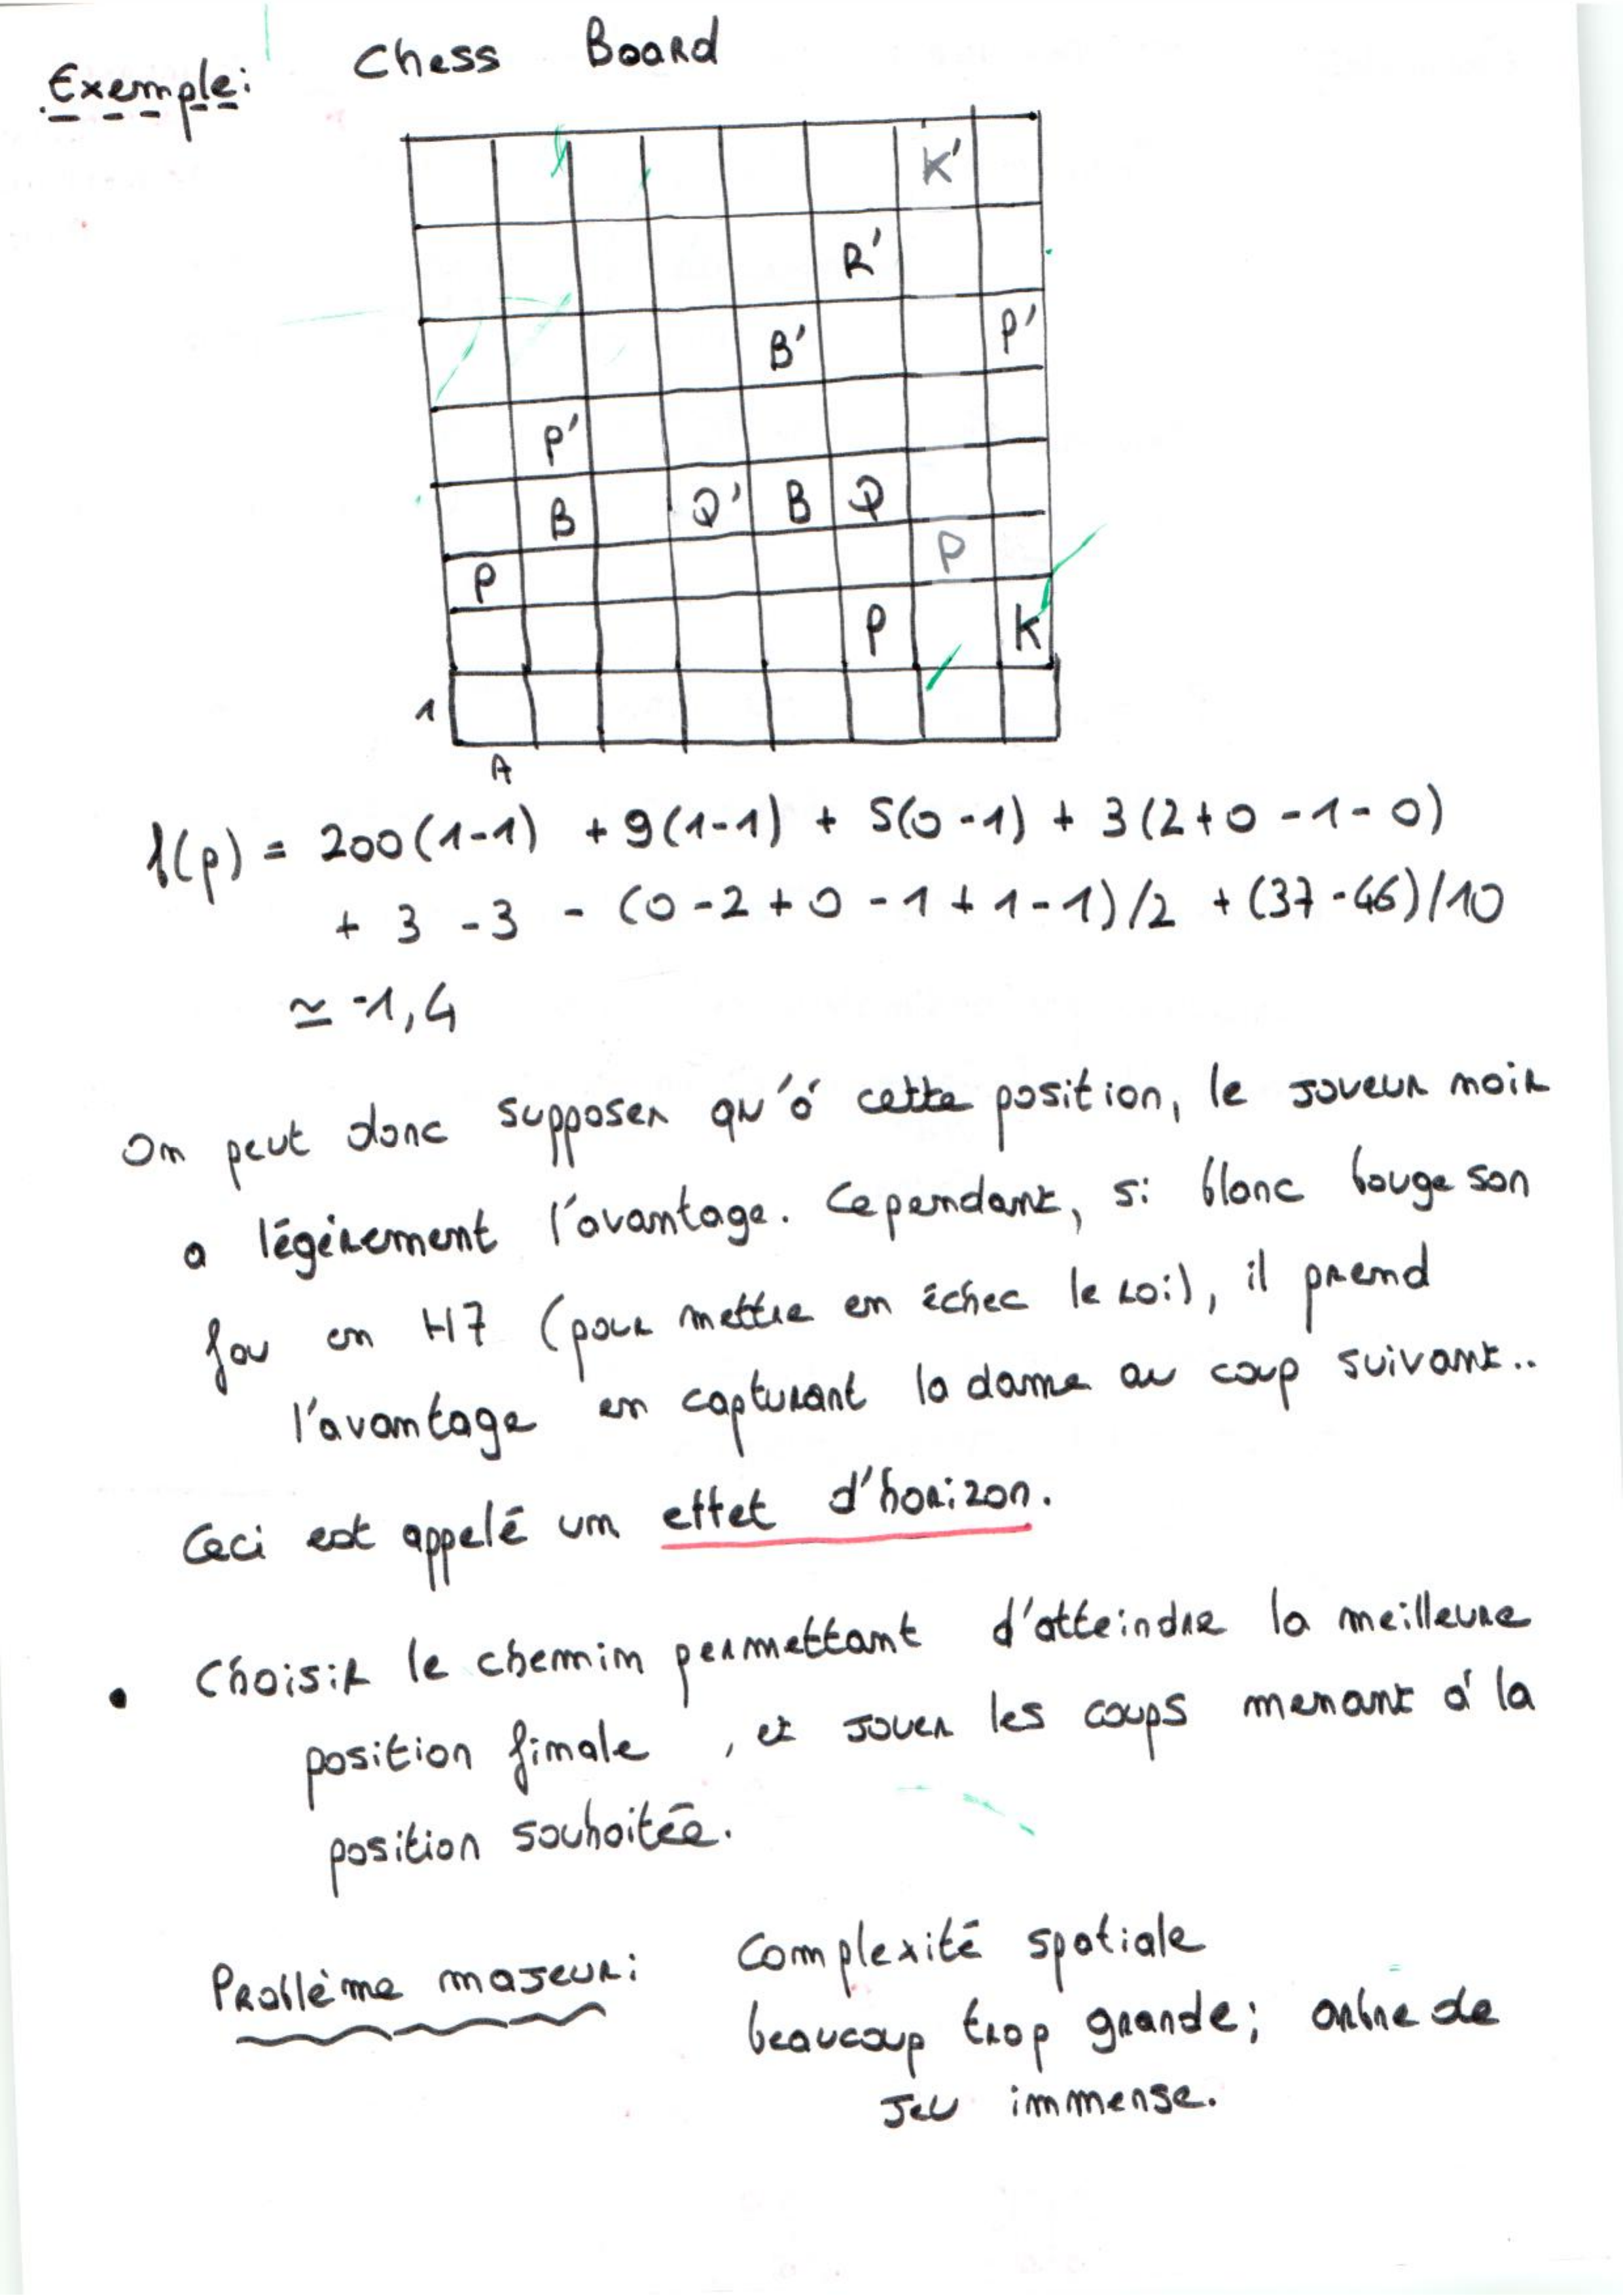 Exemple: Chess Board
K'
R'
B' P'
P'
B Q' B Q
P P
P K
1
A
f(p) = 200(1-1) + 9(1-1) + 5(0-1) + 3(2+0-1-0)
+ 3 - 3 - (0-2+0-1+1-1)/2 + (37-46)/10
≃ -1,4
On peut donc supposer qu'à cette position, le joueur noir
a légèrement l'avantage. Cependant, si blanc bouge son
fou en H7 (pour mettre en échec le roi), il prend
l'avantage en capturant la dame au coup suivant..
Ceci est appelé un effet d'horizon.
• Choisir le chemin permettant d'atteindre la meilleure
position finale, et jouer les coups menant à la
position souhaitée.
Problème majeur: Complexité spatiale
beaucoup trop grande; arbre de
jeu immense.